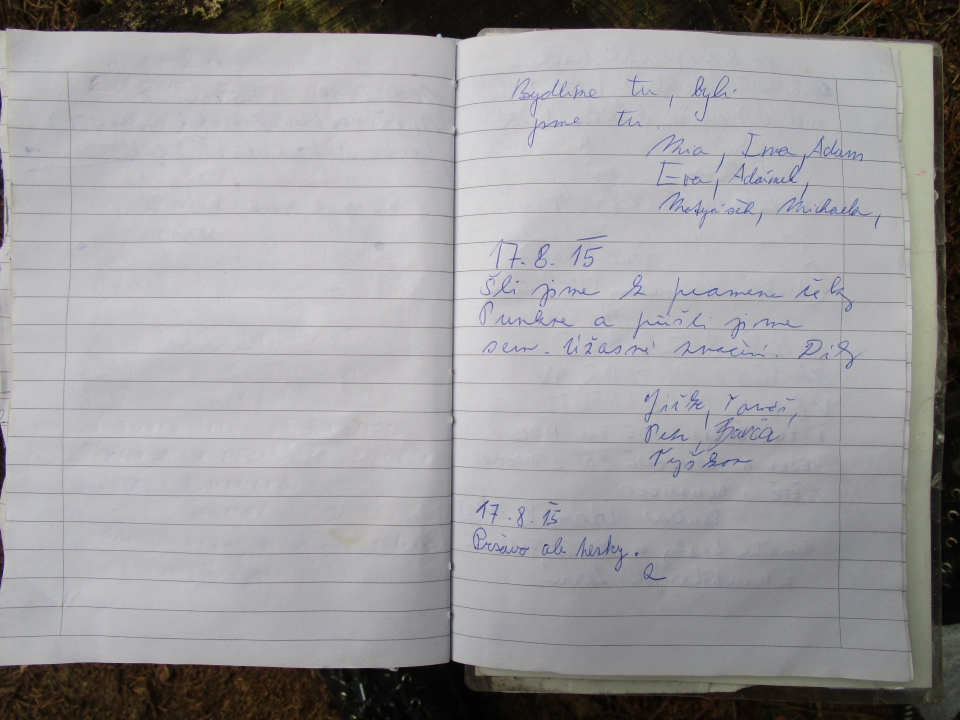 Bydlíme tu, byli
jsme tu
Mia, Ema, Adam
Eva, Adámek,
Matyášek, Michaela,
17. 8. 15
Šli jsme z pramene říčky
Punkve a přišli jsme
sem. Úžasné značení. Díky
Jirka,
Petr, Barča
Vyškov
17. 8. 15
Pršavo ale hezky.